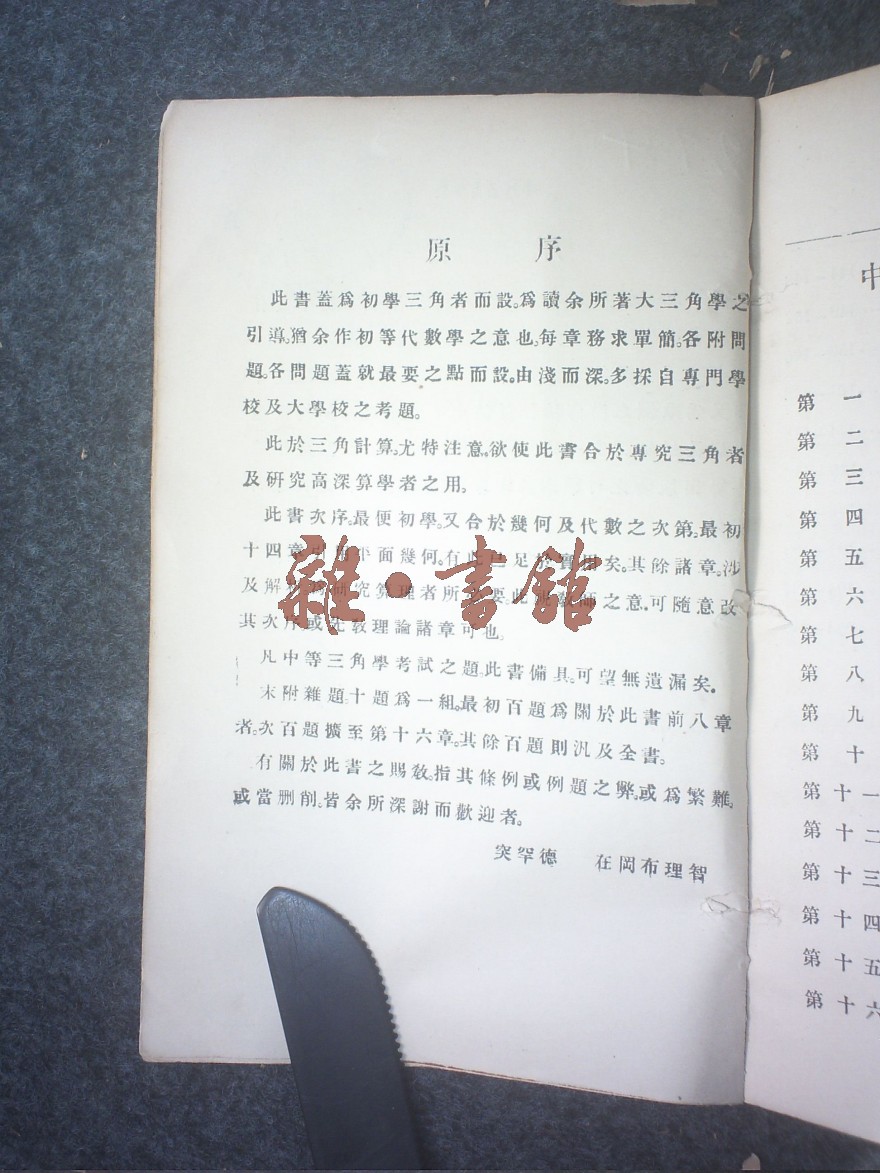 原 序
此書蓋爲初學三角者而設。爲讀余所著大三角學之
引導。猶余作初等代數學之意也。每章務求單簡。各附問
題。各問題蓋就最要之點而設。由淺而深。多採自專門學
校及大學校之考題。
此於三角計算。尤特注意。欲使此書合於專究三角者
及研究高深算學者之用。
此書次序。最便初學。又合於幾何及代數之次第。最初
十四章 面幾何。有 已足 矣。其餘諸章。涉
及解 研究算理者所 要 之意。可隨意改
其次序。或先敎理論諸章可也。
凡中等三角學考試之題。此書備具。可望無遺漏矣。
末附雜題。十題爲一組。最初百題爲關於此書前八章
者。次百題擴至第十六章。其餘百題則汎及全書。
有關於此書之賜敎。指其條例或例題之弊。或爲繁難。
或當刪削。皆余所深謝而歡迎者。
突罕德 在岡布理智
雜·書館
中
第一
第二
第三
第四
第五
第六
第七
第八
第九
第十
第十一
第十二
第十三
第十四
第十五
第十六